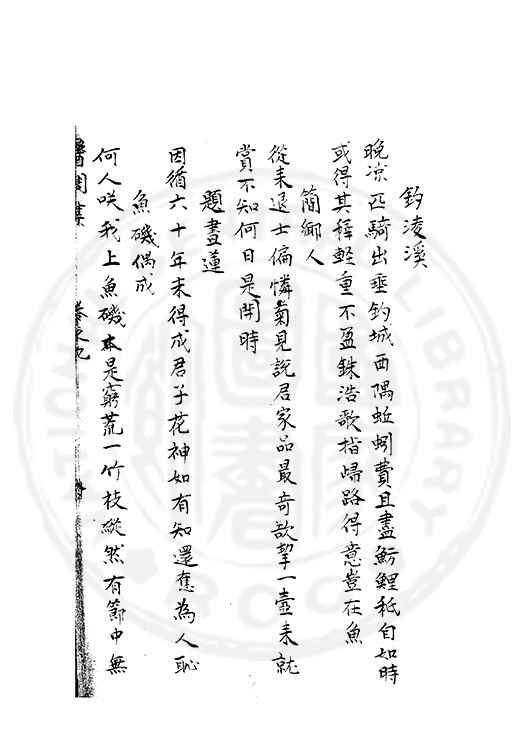 釣淩溪
晚凉匹騎出垂釣城西隅蚯蚓費且盡魴鯉秪自如時
或得其稺輕重不盈銖浩歌指歸路得意豈在魚
簡鄉人
從来退士偏憐菊見說君家品最奇欲挈一壺来就
賞不知何日是開時
題畫蓮
因循六十年未得成君子花神如有知還應為人恥
魚磯偶成
何人咲我上魚磯本是窮荒一竹枝縱然有節中無
卷之九